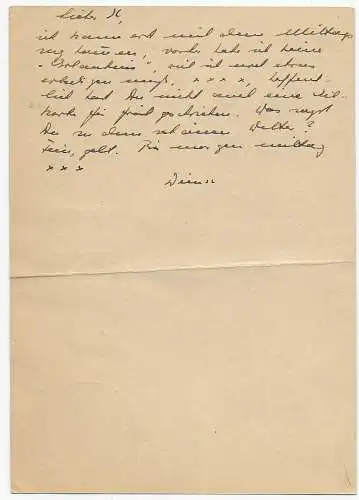 Lieber H,
ich kann erst mit dem Mittags
zug kommen, vorher habe ich keine
"Erlaubnis", weil ich noch etwas
erledigen muß, x x x x, hoffent-
lich hast Du nicht
karte für geschrieben. Was sagst
Du zu dem schönen Wetter?
Fein, gelt. Bis morgen mittag
x x x